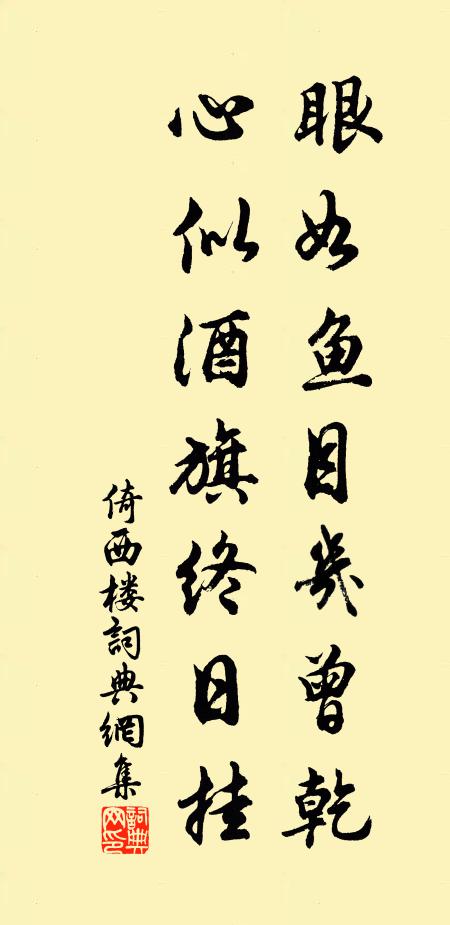 眼如鱼目幾曾乾
心似酒旗终日挂
倚西楼詞典網集
詞典
网印